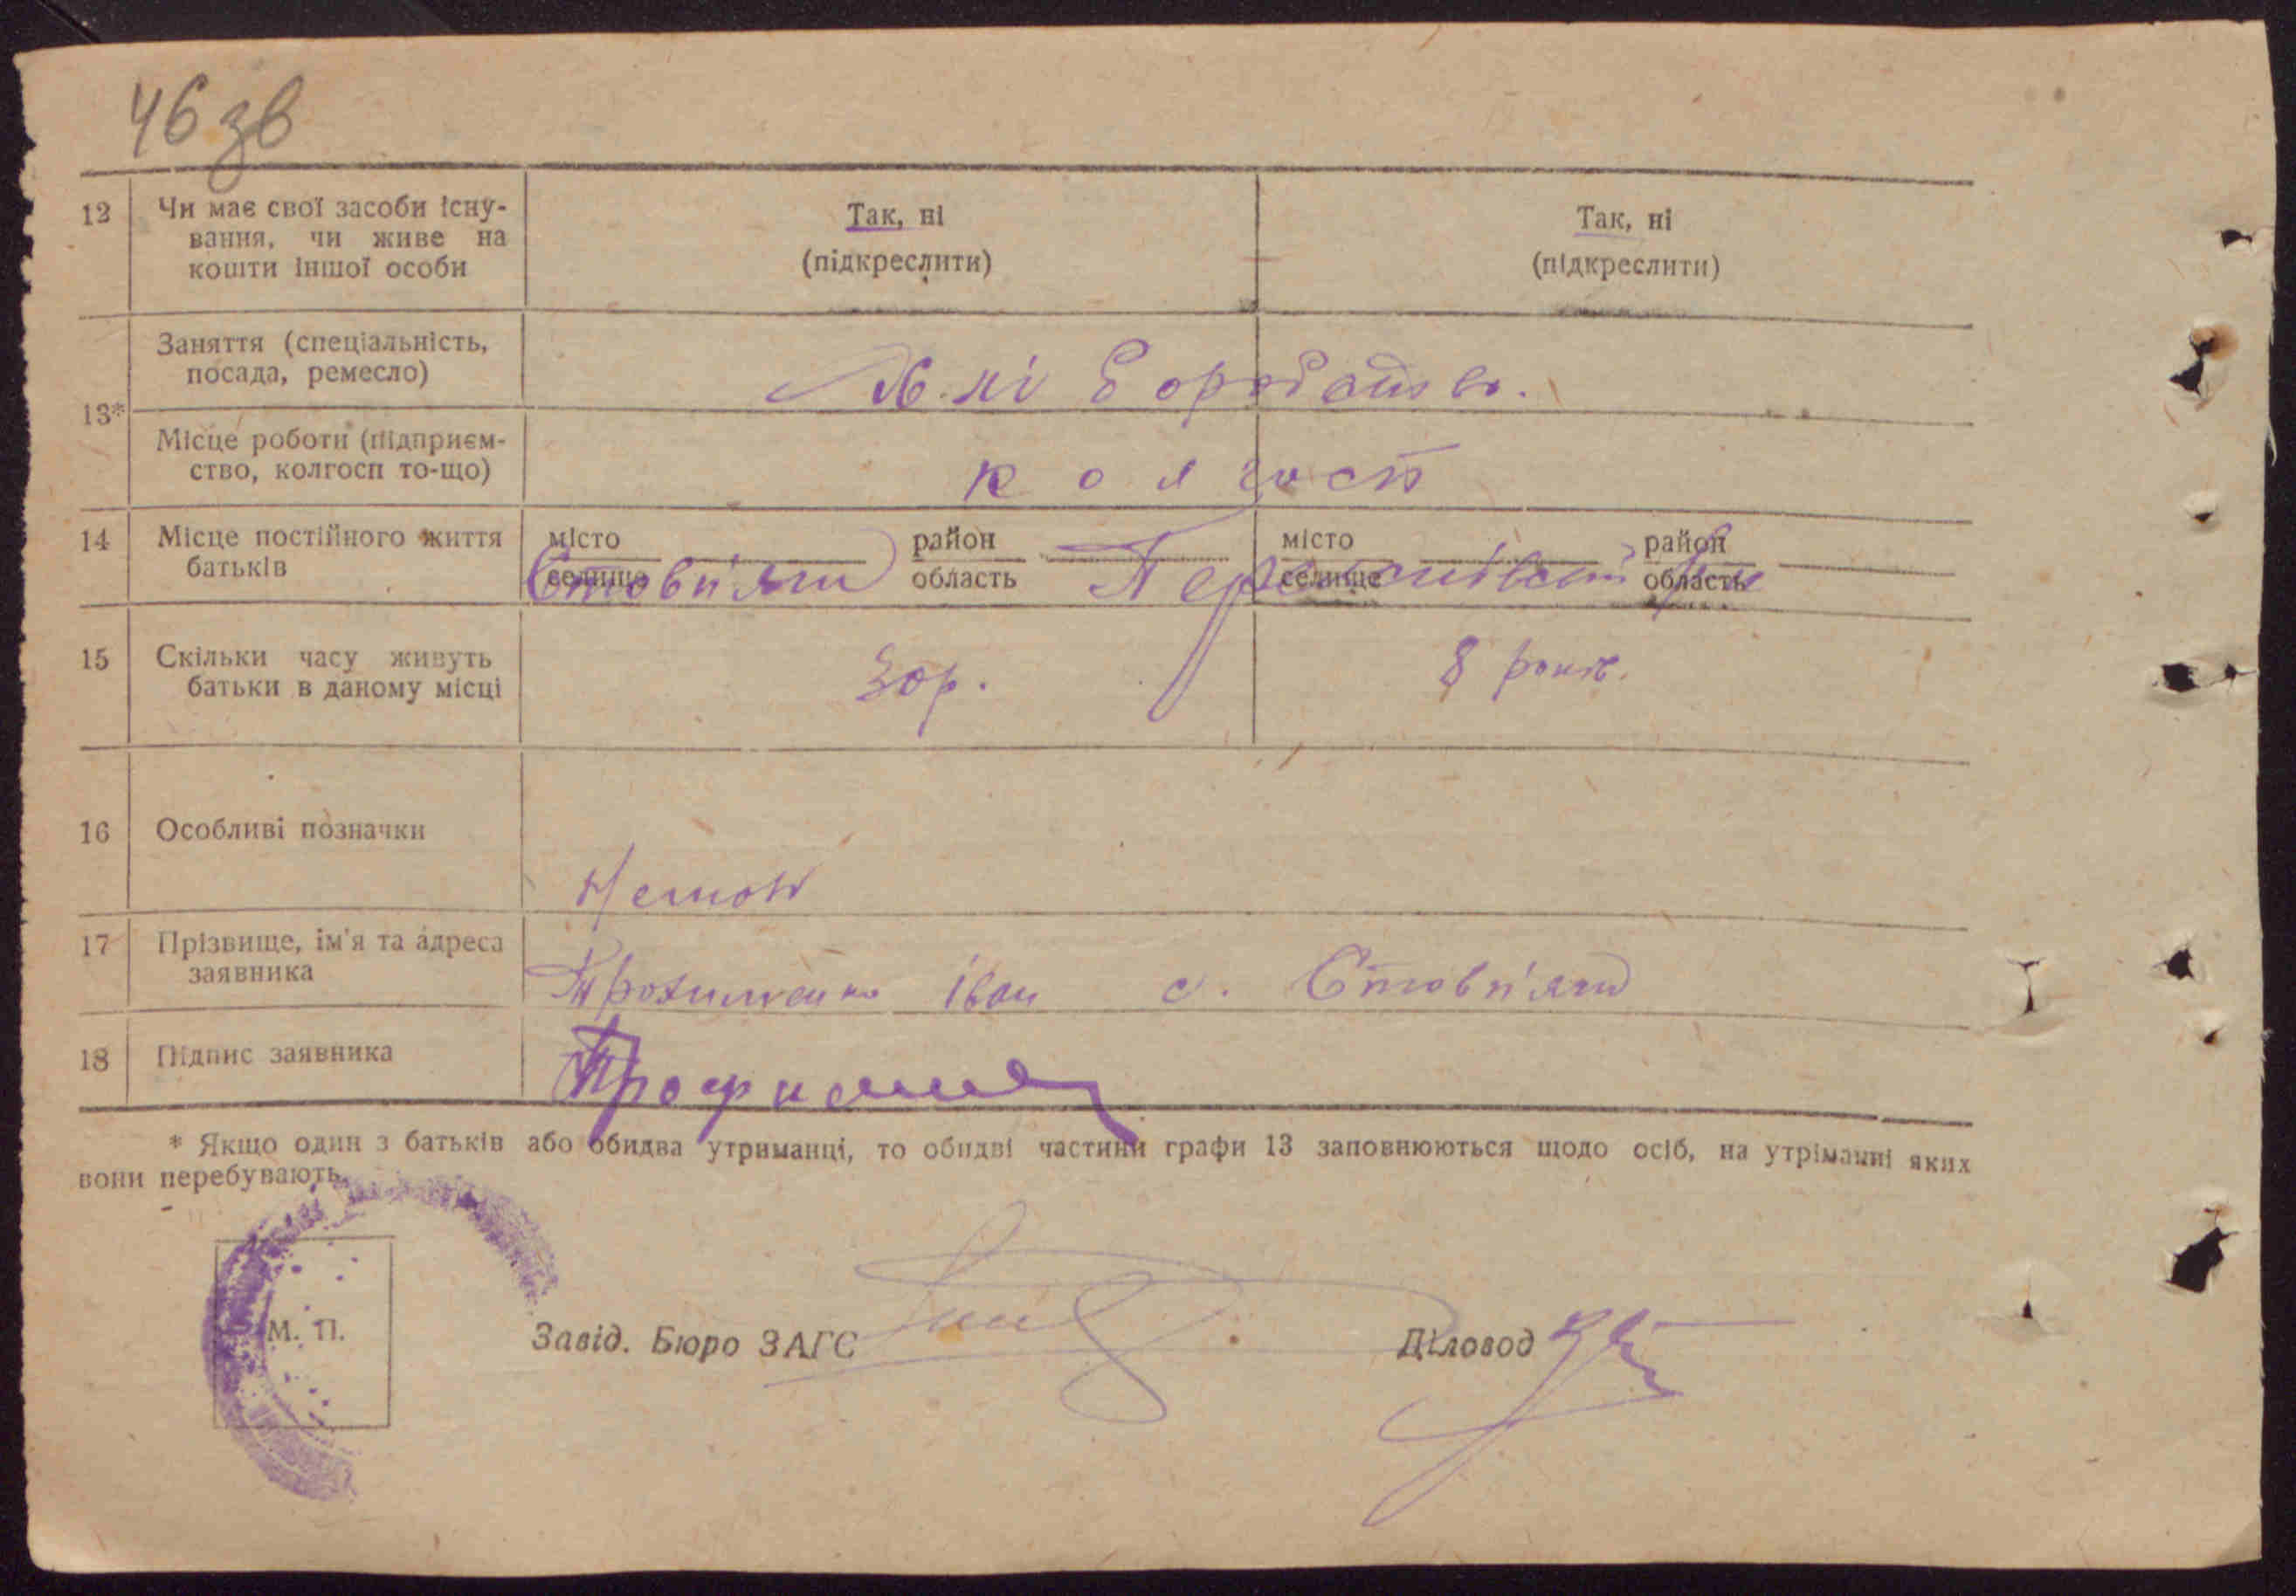 46 зв
12 Чи має свої засоби існу-
вання, чи живе на
кошти іншої особи
Так, ні
(підкреслити)
Так, ні
(підкреслити)
13*
Заняття (спеціальність,
посада, ремесло)
Місце роботи (підприєм-
ство, колгосп то-що)
колгосп
14 Місце постійного життя
батьків
місто
селище
район
область
місто
селище
район
область
Стовп'яги
15 Скільки часу живуть
батьки в даному місці
30 р.
8 років.
16 Особливі позначки
Немає
17 Прізвище, ім'я та адреса
заявника
Трохименко Іван с. Стовп'яги
18 Підпис заявника
* Якщо один з батьків або обидва утриманці, то обидві частини графи 13 заповнюються щодо осіб, на утріманні яких
вони перебувають.
М. П.
Завід. Бюро ЗАГС
Діловод